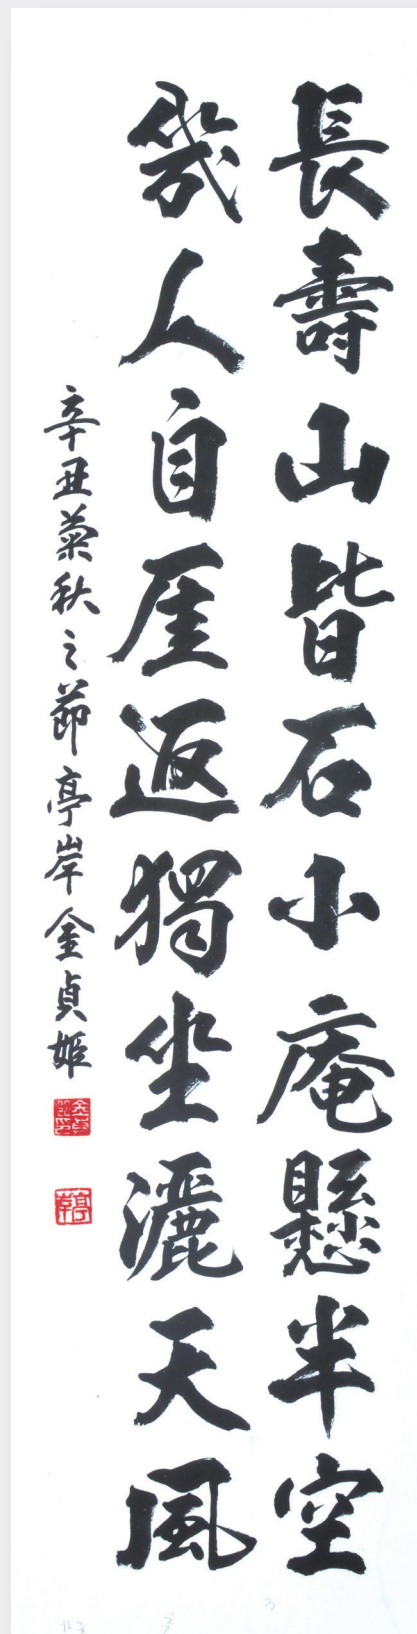 長壽山皆石小庵懸半空
幾人自厓返獨坐灑天風
辛丑菊秋之節亭岸金貞姬
亭岸